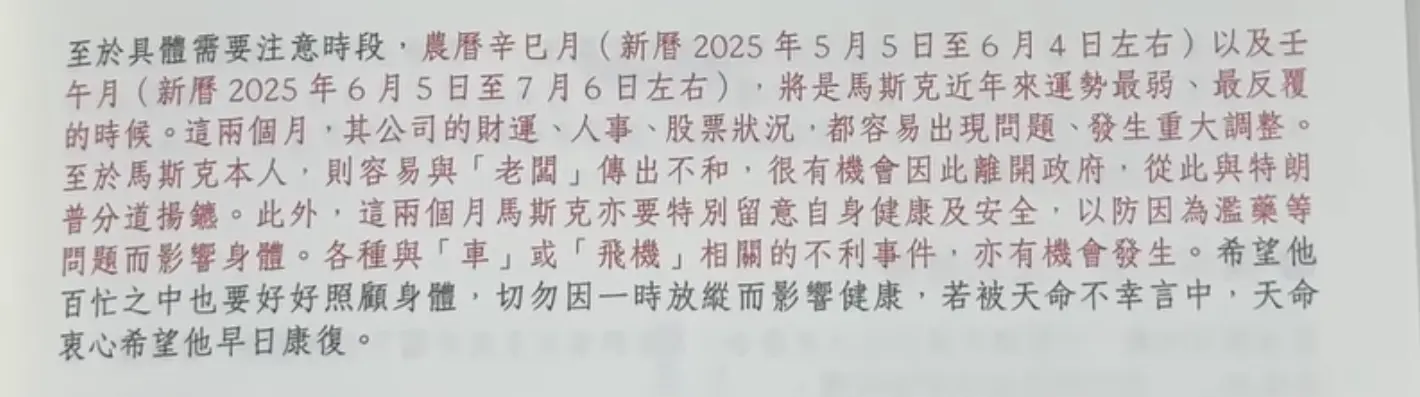 至於具體需要注意時段，農曆辛巳月（新曆 2025 年 5 月 5 日至 6 月 4 日左右）以及壬
午月（新曆 2025 年 6 月 5 日至 7 月 6 日左右），將是馬斯克近年來運勢最弱、最反覆
的時候。這兩個月，其公司的財運、人事、股票狀況，都容易出現問題、發生重大調整。
至於馬斯克本人，則容易與「老闆」傳出不和，很有機會因此離開政府，從此與特朗
普分道揚鑣。此外，這兩個月馬斯克亦要特別留意自身健康及安全，以防因為濫藥等
問題而影響身體。各種與「車」或「飛機」相關的不利事件，亦有機會發生。希望他
百忙之中也要好好照顧身體，切勿因一時放縱而影響健康，若被天命不幸言中，天命
衷心希望他早日康復。